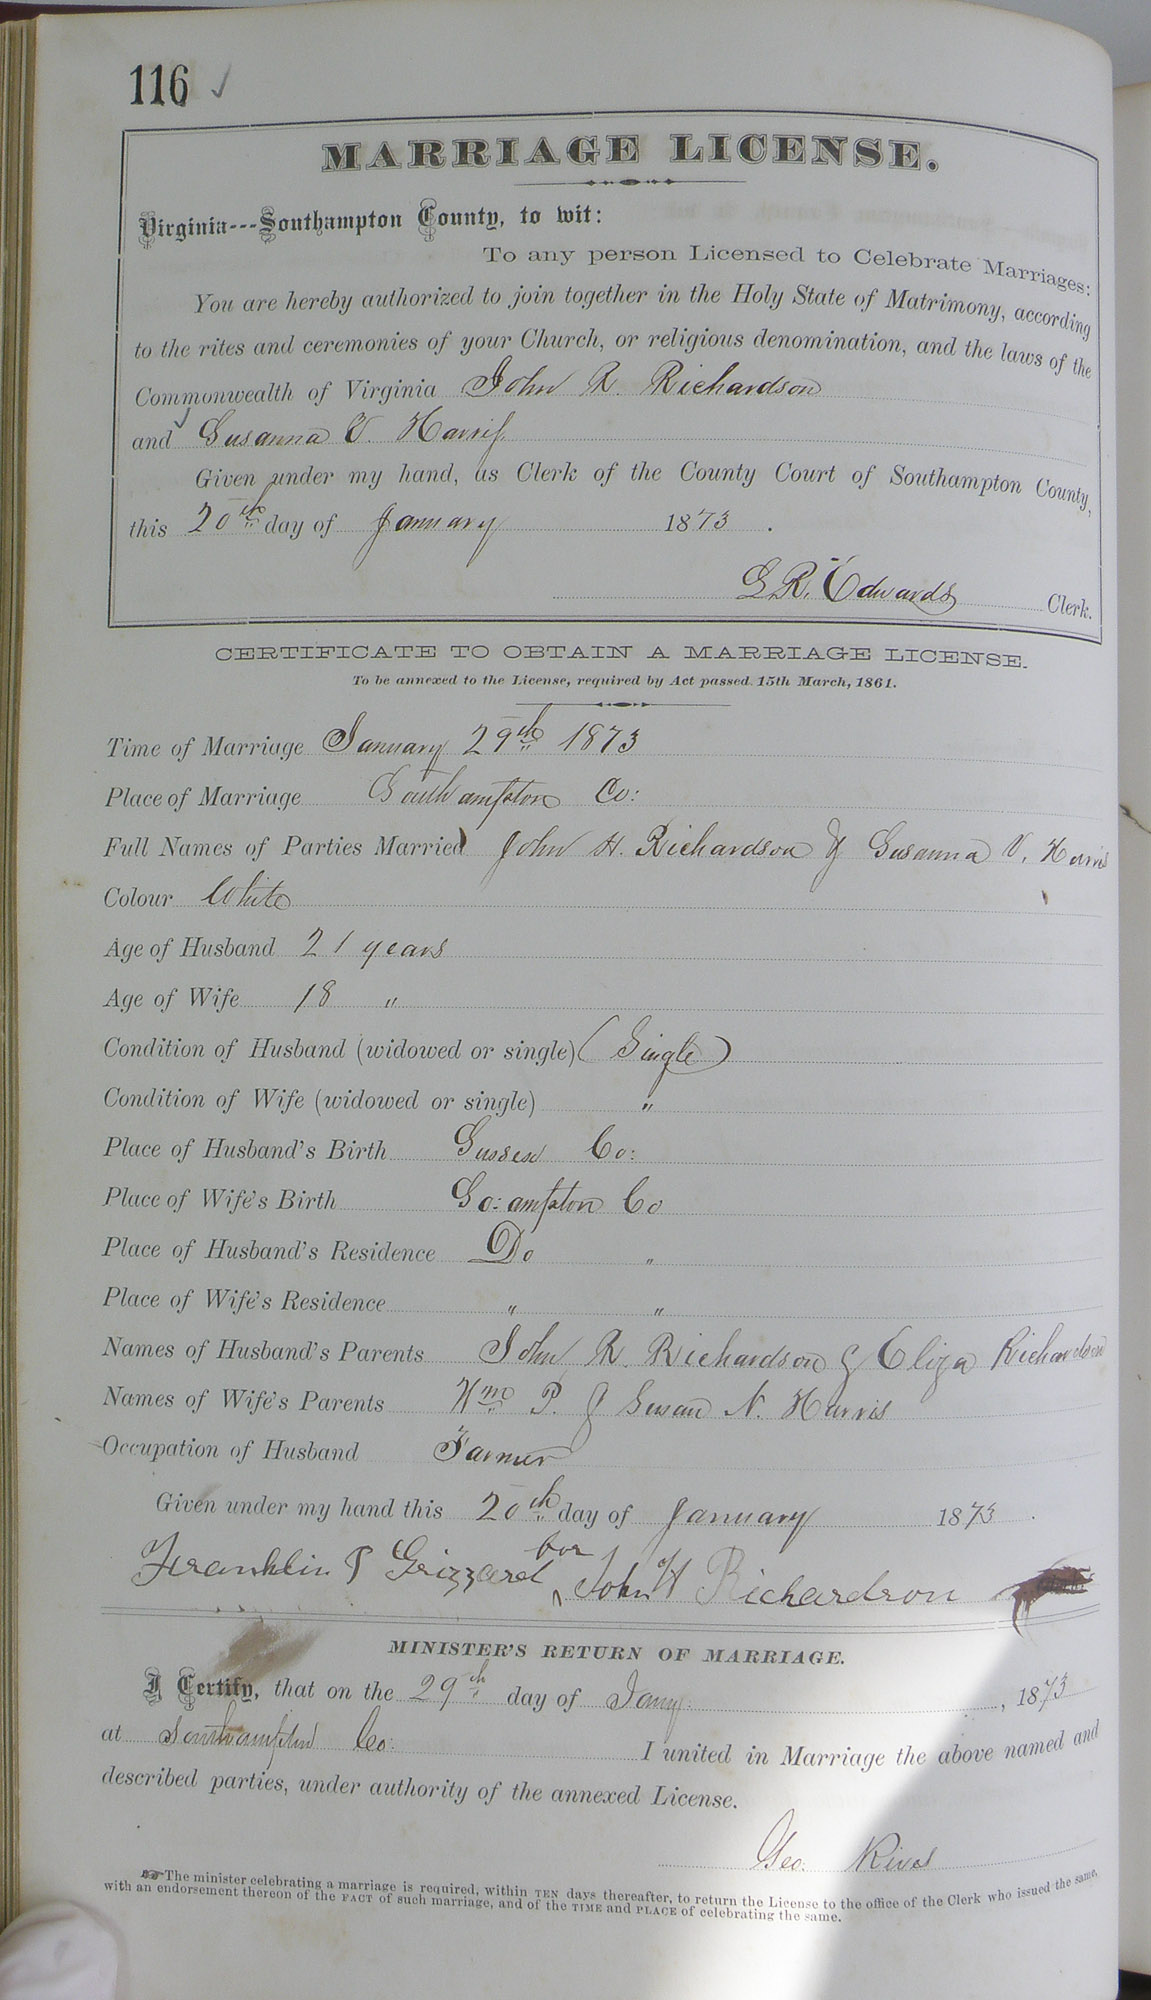 116 ✓
MARRIAGE LICENSE.
Virginia---Southampton County, to wit:
To any person Licensed to Celebrate Marriages:
You are hereby authorized to join together in the Holy State of Matrimony, according
to the rites and ceremonies of your Church, or religious denomination, and the laws of the
Commonwealth of Virginia John R. Richardson
and Susanna V. Harris
Given under my hand, as Clerk of the County Court of Southampton County,
this 20th day of January 1873.
L R. Edwards Clerk.
CERTIFICATE TO OBTAIN A MARRIAGE LICENSE.
To be annexed to the License, required by Act passed 15th March, 1861.
Time of Marriage January 29th 1873
Place of Marriage Southampton Co:
Full Names of Parties Married John H. Richardson & Susanna V. Harris
Colour White
Age of Husband 21 years
Age of Wife 18 "
Condition of Husband (widowed or single) (Single)
Condition of Wife (widowed or single) "
Place of Husband's Birth Sussex Co:
Place of Wife's Birth So:ampton Co
Place of Husband's Residence Do "
Place of Wife's Residence " "
Names of Husband's Parents John R. Richardson & Eliza Richardson
Names of Wife's Parents Wm P. & Susan N. Harris
Occupation of Husband Farmer
Given under my hand this 20th day of January 1873.
Franklin Grizzard for John H Richardson
MINISTER'S RETURN OF MARRIAGE.
I Certify, that on the 29th day of Jany. , 1873
at Southampton Co. I united in Marriage the above named and
described parties, under authority of the annexed License.
Geo. Rives
The minister celebrating a marriage is required, within TEN days thereafter, to return the License to the office of the Clerk who issued the same,
with an endorsement thereon of the FACT of such marriage, and of the TIME and PLACE of celebrating the same.